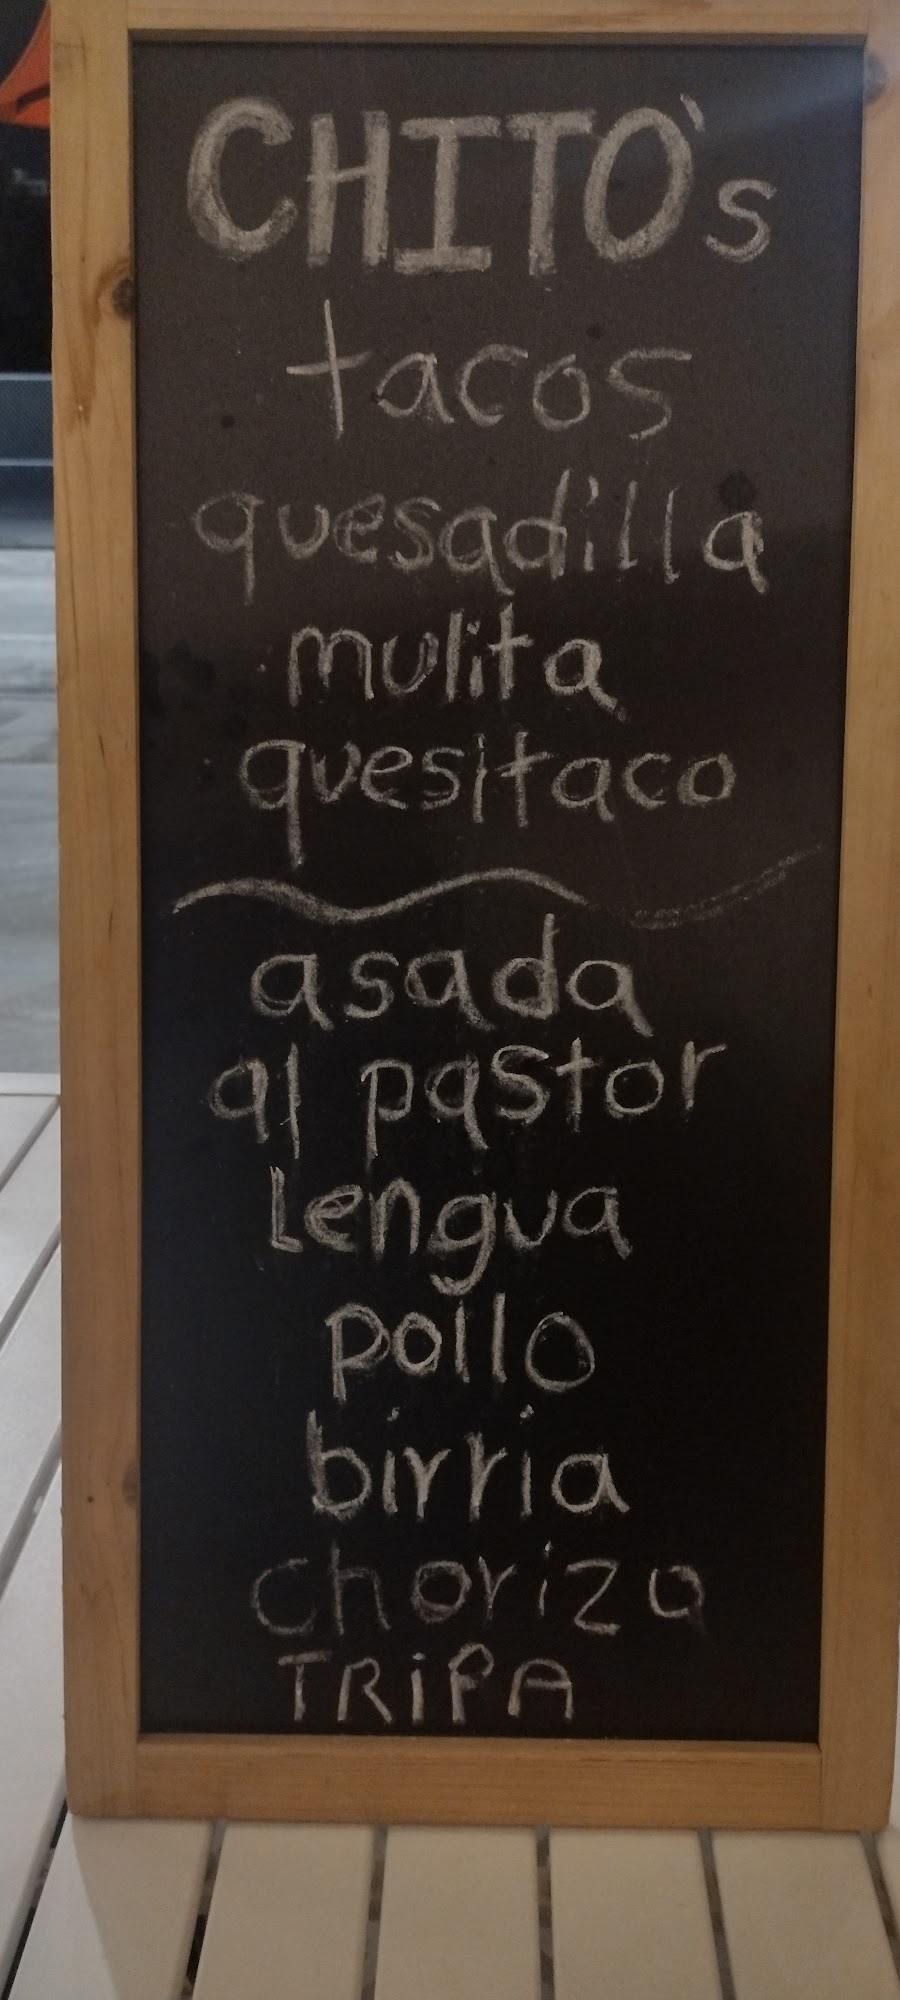 CHITO's
tacos
quesadilla
mulita
quesitaco
asada
al pastor
Lengua
pollo
birria
chorizo
TRiPA